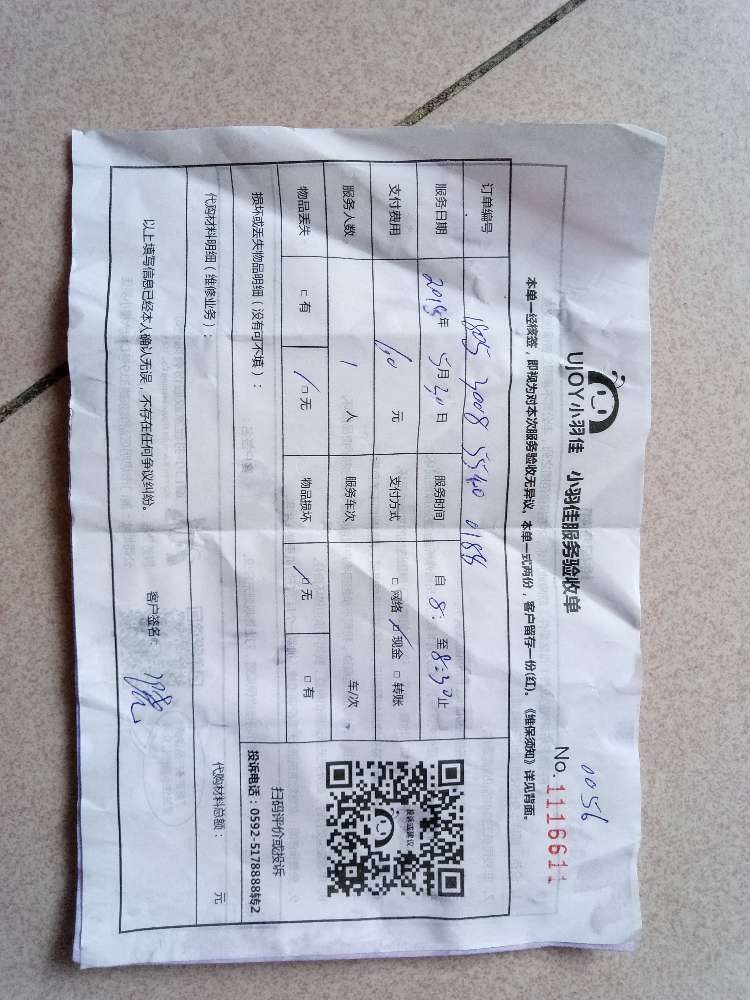 UJOY小羽佳 小羽佳服务验收单
0056
No. 1116611
本单一经核签，即视为对本次服务验收无异议，本单一式两份，客户留存一份(红)。《维保须知》详见背面。
订单编号 1805 3008 5540 0188
服务日期 2018年 5月30日 服务时间 自 8: 至 8:30止
支付费用 60 元 支付方式 □ 网络 □ 现金 □ 转账
服务人数 1 人 服务车次 车/次
物品丢失 □ 有 □ 无 物品损坏 □ 无 □ 有
投诉或建议
扫码评价或投诉
投诉电话：0592-5178888转2
损坏或丢失物品明细（没有可不填）：
代购材料明细（维修业务）： 代购材料总额： 元
以上填写信息已经本人确认无误，不存在任何争议纠纷。 客户签名: